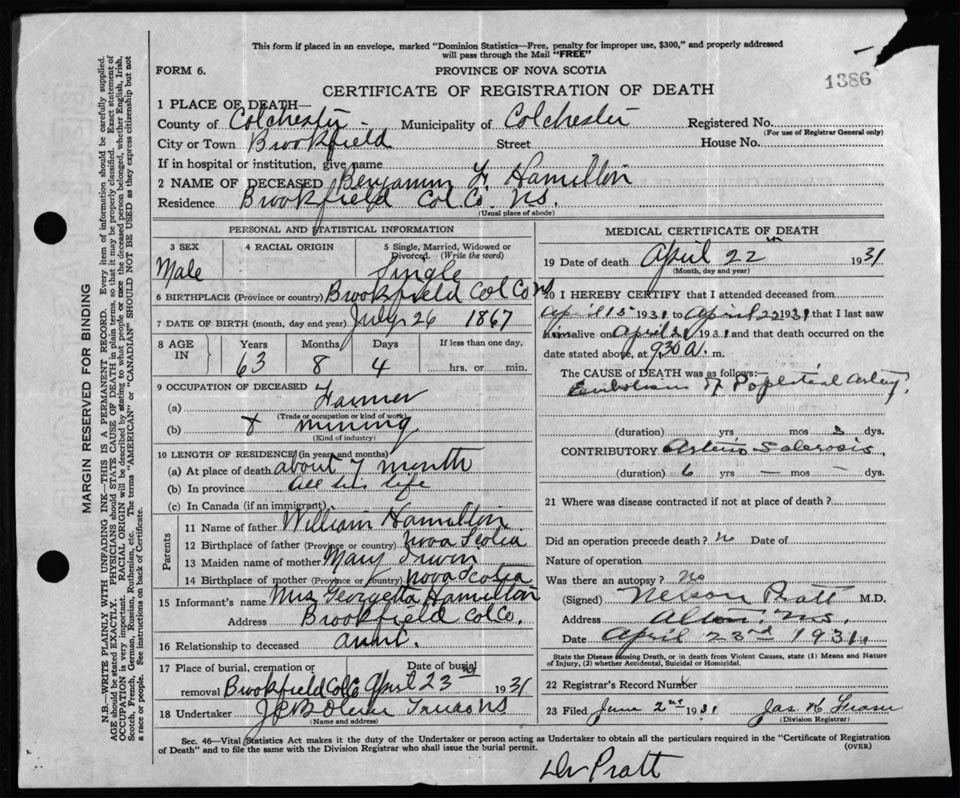 This form if placed in an envelope, marked "Dominion Statistics—Free, penalty for improper use, $300," and properly addressed
will pass through the Mail "FREE"
FORM 6.
PROVINCE OF NOVA SCOTIA
1386
CERTIFICATE OF REGISTRATION OF DEATH
1 PLACE OF DEATH—
County of Colchester Municipality of Colchester Registered No.
(For use of Registrar General only)
City or Town Brookfield Street House No.
If in hospital or institution, give name
2 NAME OF DECEASED Benjamin F Hamilton
Residence Brookfield Col Co. NS.
(Usual place of abode)
PERSONAL AND STATISTICAL INFORMATION
3 SEX 4 RACIAL ORIGIN 5 Single, Married, Widowed or
Divorced. (Write the word)
Male Single
6 BIRTHPLACE (Province or country) Brookfield Col Co NS
7 DATE OF BIRTH (month, day and year) July 26 1867
8 AGE IN Years Months Days If less than one day,
63 8 4 hrs. or min.
9 OCCUPATION OF DECEASED
(a) Farmer
(Trade or occupation or kind of work)
(b) & mining
(Kind of industry)
10 LENGTH OF RESIDENCE (in years and months)
(a) At place of death about 7 month
(b) In province all his life
(c) In Canada (if an immigrant)
Parents
11 Name of father William Hamilton
12 Birthplace of father (Province or country) Nova Scotia
13 Maiden name of mother Mary Irwin
14 Birthplace of mother (Province or country) Nova Scotia
15 Informant's name Mrs Georgetta Hamilton
Address Brookfield Col Co.
16 Relationship to deceased aunt.
17 Place of burial, cremation or Date of burial
removal Brookfield Col Co April 23rd 1931
18 Undertaker Truro NS
(Name and address)
MEDICAL CERTIFICATE OF DEATH
19 Date of death April 22 1931
(Month, day and year)
20 I HEREBY CERTIFY that I attended deceased from
April 1931 to April 22 1931 that I last saw
him alive on April 1931 and that death occurred on
the date stated above, at 930 A. m.
The CAUSE OF DEATH was as follows:—
Embolism of Popliteal artery.
(duration) yrs mos 3 dys.
CONTRIBUTORY Arterio Sclerosis
(duration) 6 yrs — mos — dys.
21 Where was disease contracted if not at place of death?
Did an operation precede death? no Date of
Nature of operation
Was there an autopsy? No
(Signed) Nelson Pratt M.D.
Address Alton. NS.
Date April 23rd 1931.
State the Disease causing Death, or in death from Violent Causes, state (1) Means and Nature
of Injury, (2) whether Accidental, Suicidal or Homicidal.
22 Registrar's Record Number
23 Filed June 2nd 1931 Jas H Fraser
(Division Registrar)
Sec. 46—Vital Statistics Act makes it the duty of the Undertaker or person acting as Undertaker to obtain all the particulars required in the "Certificate of Registration
of Death" and to file the same with the Division Registrar who shall issue the burial permit.
(OVER)
Dr Pratt
MARGIN RESERVED FOR BINDING
N.B.—WRITE PLAINLY WITH UNFADING INK—THIS IS A PERMANENT RECORD. Every item of information should be carefully supplied.
AGE should be stated EXACTLY. PHYSICIANS should STATE CAUSE OF DEATH in plain terms, so that it may be properly classified. Exact statement of
OCCUPATION is very important. RACIAL ORIGIN will be described by stating to what people or race the deceased person belonged, whether English, Irish,
Scotch, French, German, Russian, Ruthenian, etc. The terms "AMERICAN" or "CANADIAN" SHOULD NOT BE USED as they express citizenship but not
a race or people. See instructions on back of Certificate.